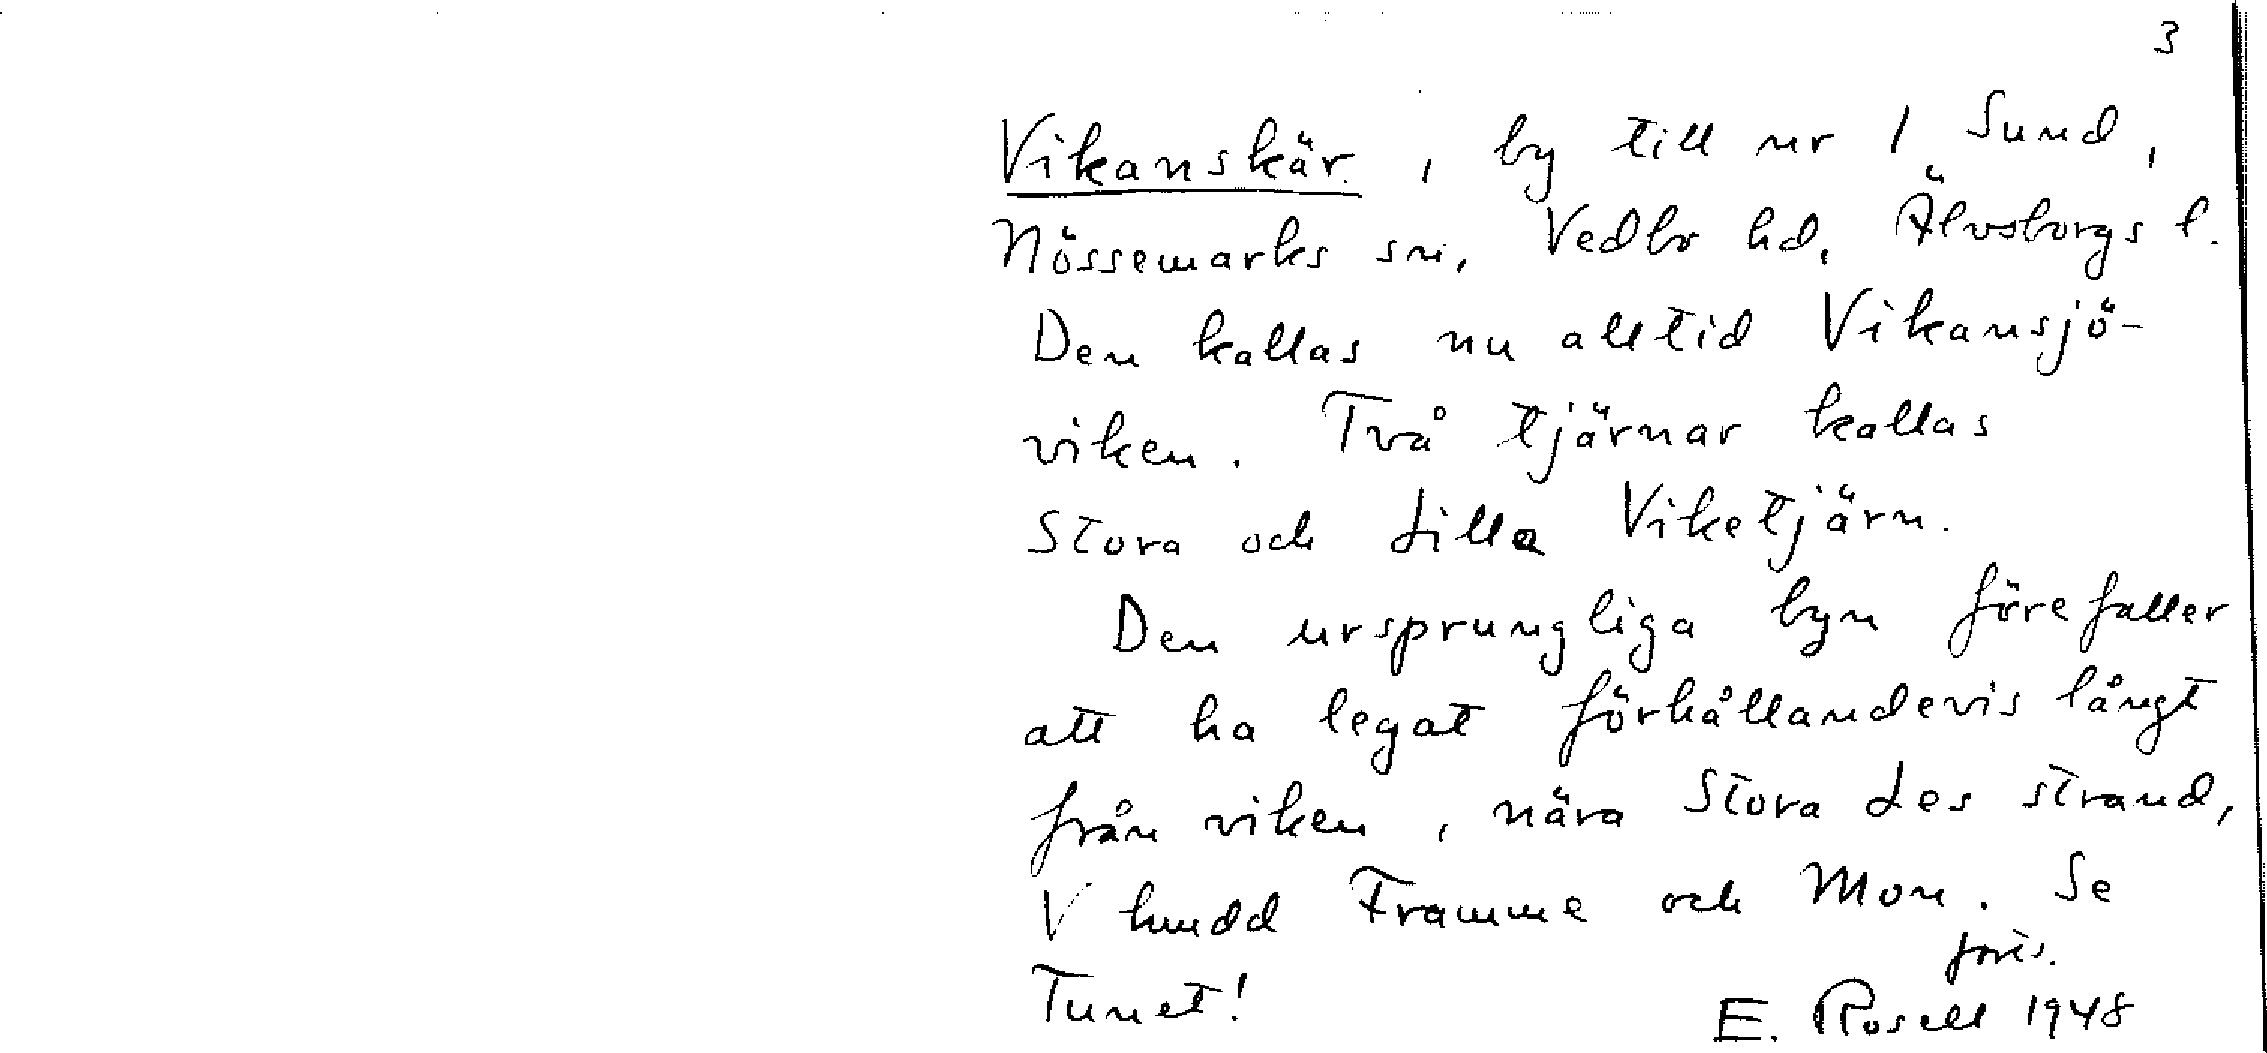 3
Vikanskär, by till nr 1 Sund,
Nössemarks sn, Vedbo hd, Älvsborgs l.
Den kallas nu alltid Vikansjö-
viken. Två tjärnar kallas
Stora och Lilla Viketjärn.
Den ursprungliga byn förefaller
att ha legat förhållandevis långt
från viken, nära Stora Les strand,
V hmdd Framme och Mon. Se
forts.
Tunet!
E. Rosell 1948